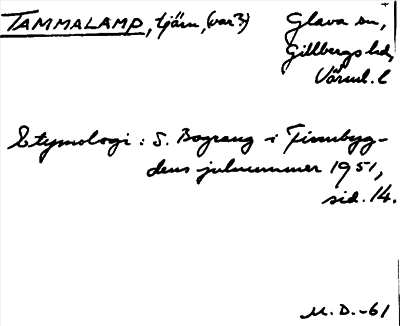 TAMMALAMP, tjärn, (var 3) Glava sn,
Gillbergs hd,
Värml. l
Etymologi: S. Bograng i Finnbyg-
dens julnummer 1951,
sid. 14.
M. D. -61